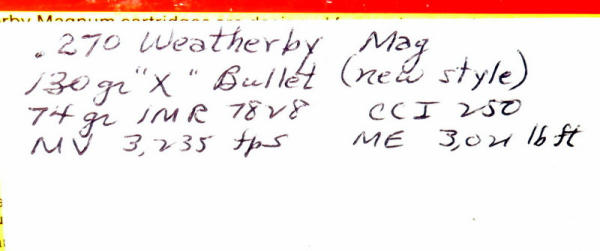 rby Magnum cartridges are designed for
.270 Weatherby Mag
130 gr "X" Bullet (new style)
74 gr IMR 7828 CCI 250
MV 3,235 fps ME 3,021 lb ft